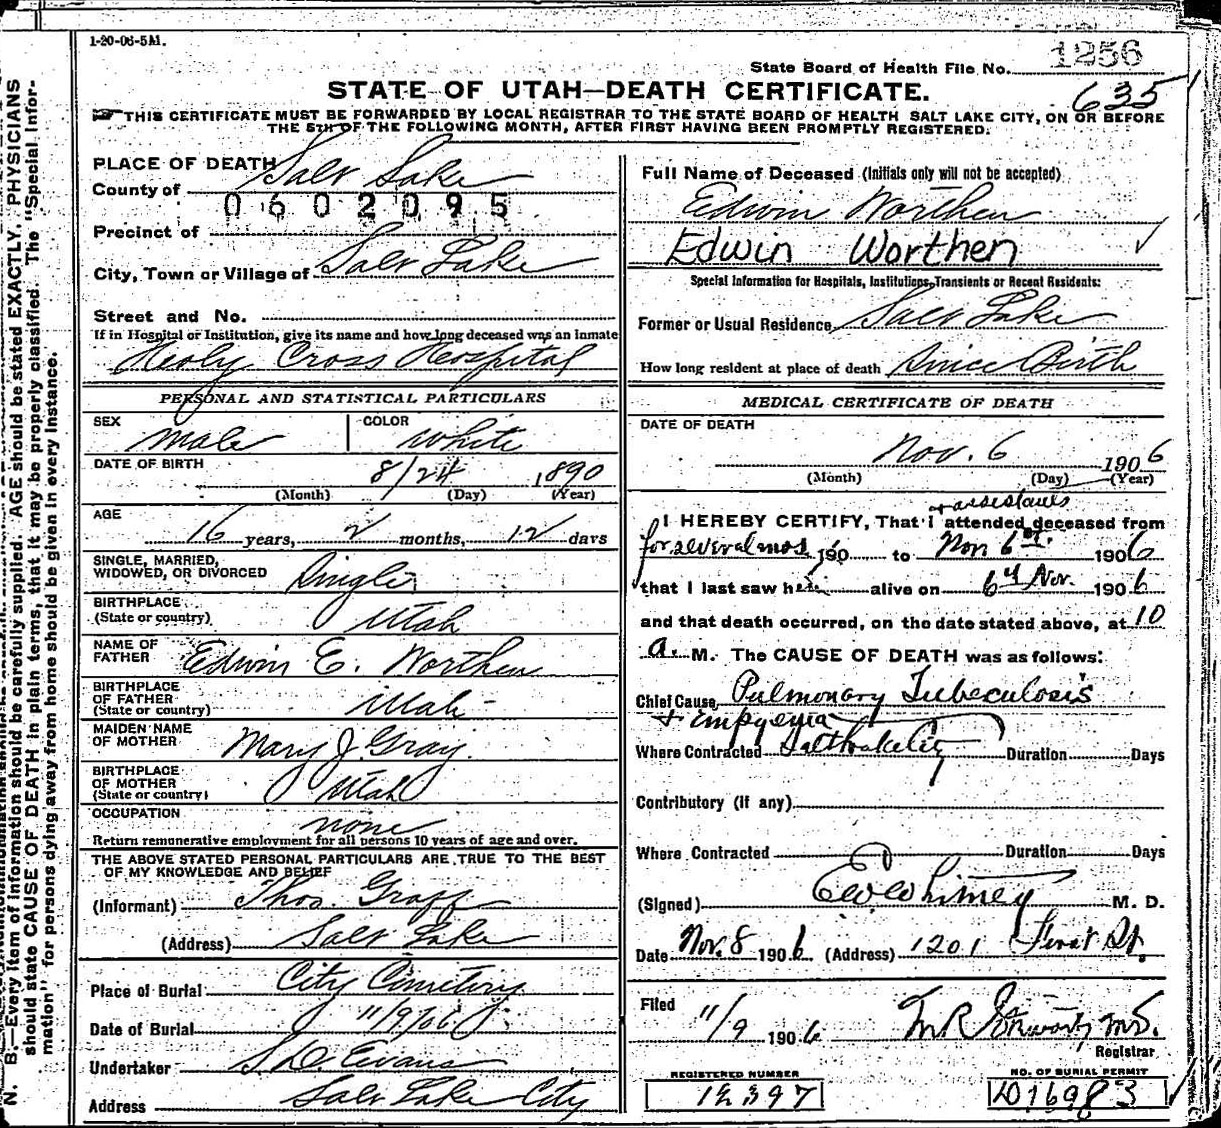 1-20-06-5M.
1256
State Board of Health File No.
635
STATE OF UTAH—DEATH CERTIFICATE.
THIS CERTIFICATE MUST BE FORWARDED BY LOCAL REGISTRAR TO THE STATE BOARD OF HEALTH SALT LAKE CITY, ON OR BEFORE
THE 5TH OF THE FOLLOWING MONTH, AFTER FIRST HAVING BEEN PROMPTLY REGISTERED.
N. B.—Every item of information should be carefully supplied. AGE should be stated EXACTLY. PHYSICIANS
should state CAUSE OF DEATH in plain terms, that it may be properly classified. The "Special Infor-
mation" for persons dying away from home should be given in every instance.
PLACE OF DEATH
County of Salt Lake
0602095
Precinct of
City, Town or Village of Salt Lake
Street and No.
If in Hospital or Institution, give its name and how long deceased was an inmate
Holy Cross Hospital
PERSONAL AND STATISTICAL PARTICULARS
SEX male COLOR white
DATE OF BIRTH 8/24 1890
(Month) (Day) (Year)
AGE
16 years, 2 months, 12 days
SINGLE, MARRIED,
WIDOWED, OR DIVORCED Single
BIRTHPLACE
(State or country) Utah
NAME OF
FATHER Edwin E. Worthen
BIRTHPLACE
OF FATHER
(State or country) Utah
MAIDEN NAME
OF MOTHER Mary J. Gray.
BIRTHPLACE
OF MOTHER
(State or country) Utah
OCCUPATION none
Return remunerative employment for all persons 10 years of age and over.
THE ABOVE STATED PERSONAL PARTICULARS ARE TRUE TO THE BEST
OF MY KNOWLEDGE AND BELIEF
(Informant) Thos. Graff
(Address) Salt Lake
Place of Burial City Cemetery
Date of Burial 11/9/06
Undertaker S. D. Evans
Address Salt Lake City
Full Name of Deceased (Initials only will not be accepted)
Edwin Worthen
Edwin Worthen
Special Information for Hospitals, Institutions, Transients or Recent Residents:
Former or Usual Residence Salt Lake
How long resident at place of death Since Birth
MEDICAL CERTIFICATE OF DEATH
DATE OF DEATH
Nov. 6 1906
(Month) (Day) (Year)
I HEREBY CERTIFY, That I attended deceased from
for several mos 190 to Nov 6th 1906
that I last saw him alive on 6th Nov. 1906
and that death occurred, on the date stated above, at 10
a. M. The CAUSE OF DEATH was as follows:
Chief Cause Pulmonary Tubeculosis
+ Empyema
Where Contracted Salt Lake City Duration Days
Contributory (if any)
Where Contracted Duration Days
(Signed) E W Whitney M. D.
Date Nov. 8 1906 (Address) 1201 First St.
Filed 11/9 1906
Registrar
REGISTERED NUMBER
12397
NO. OF BURIAL PERMIT
D16983